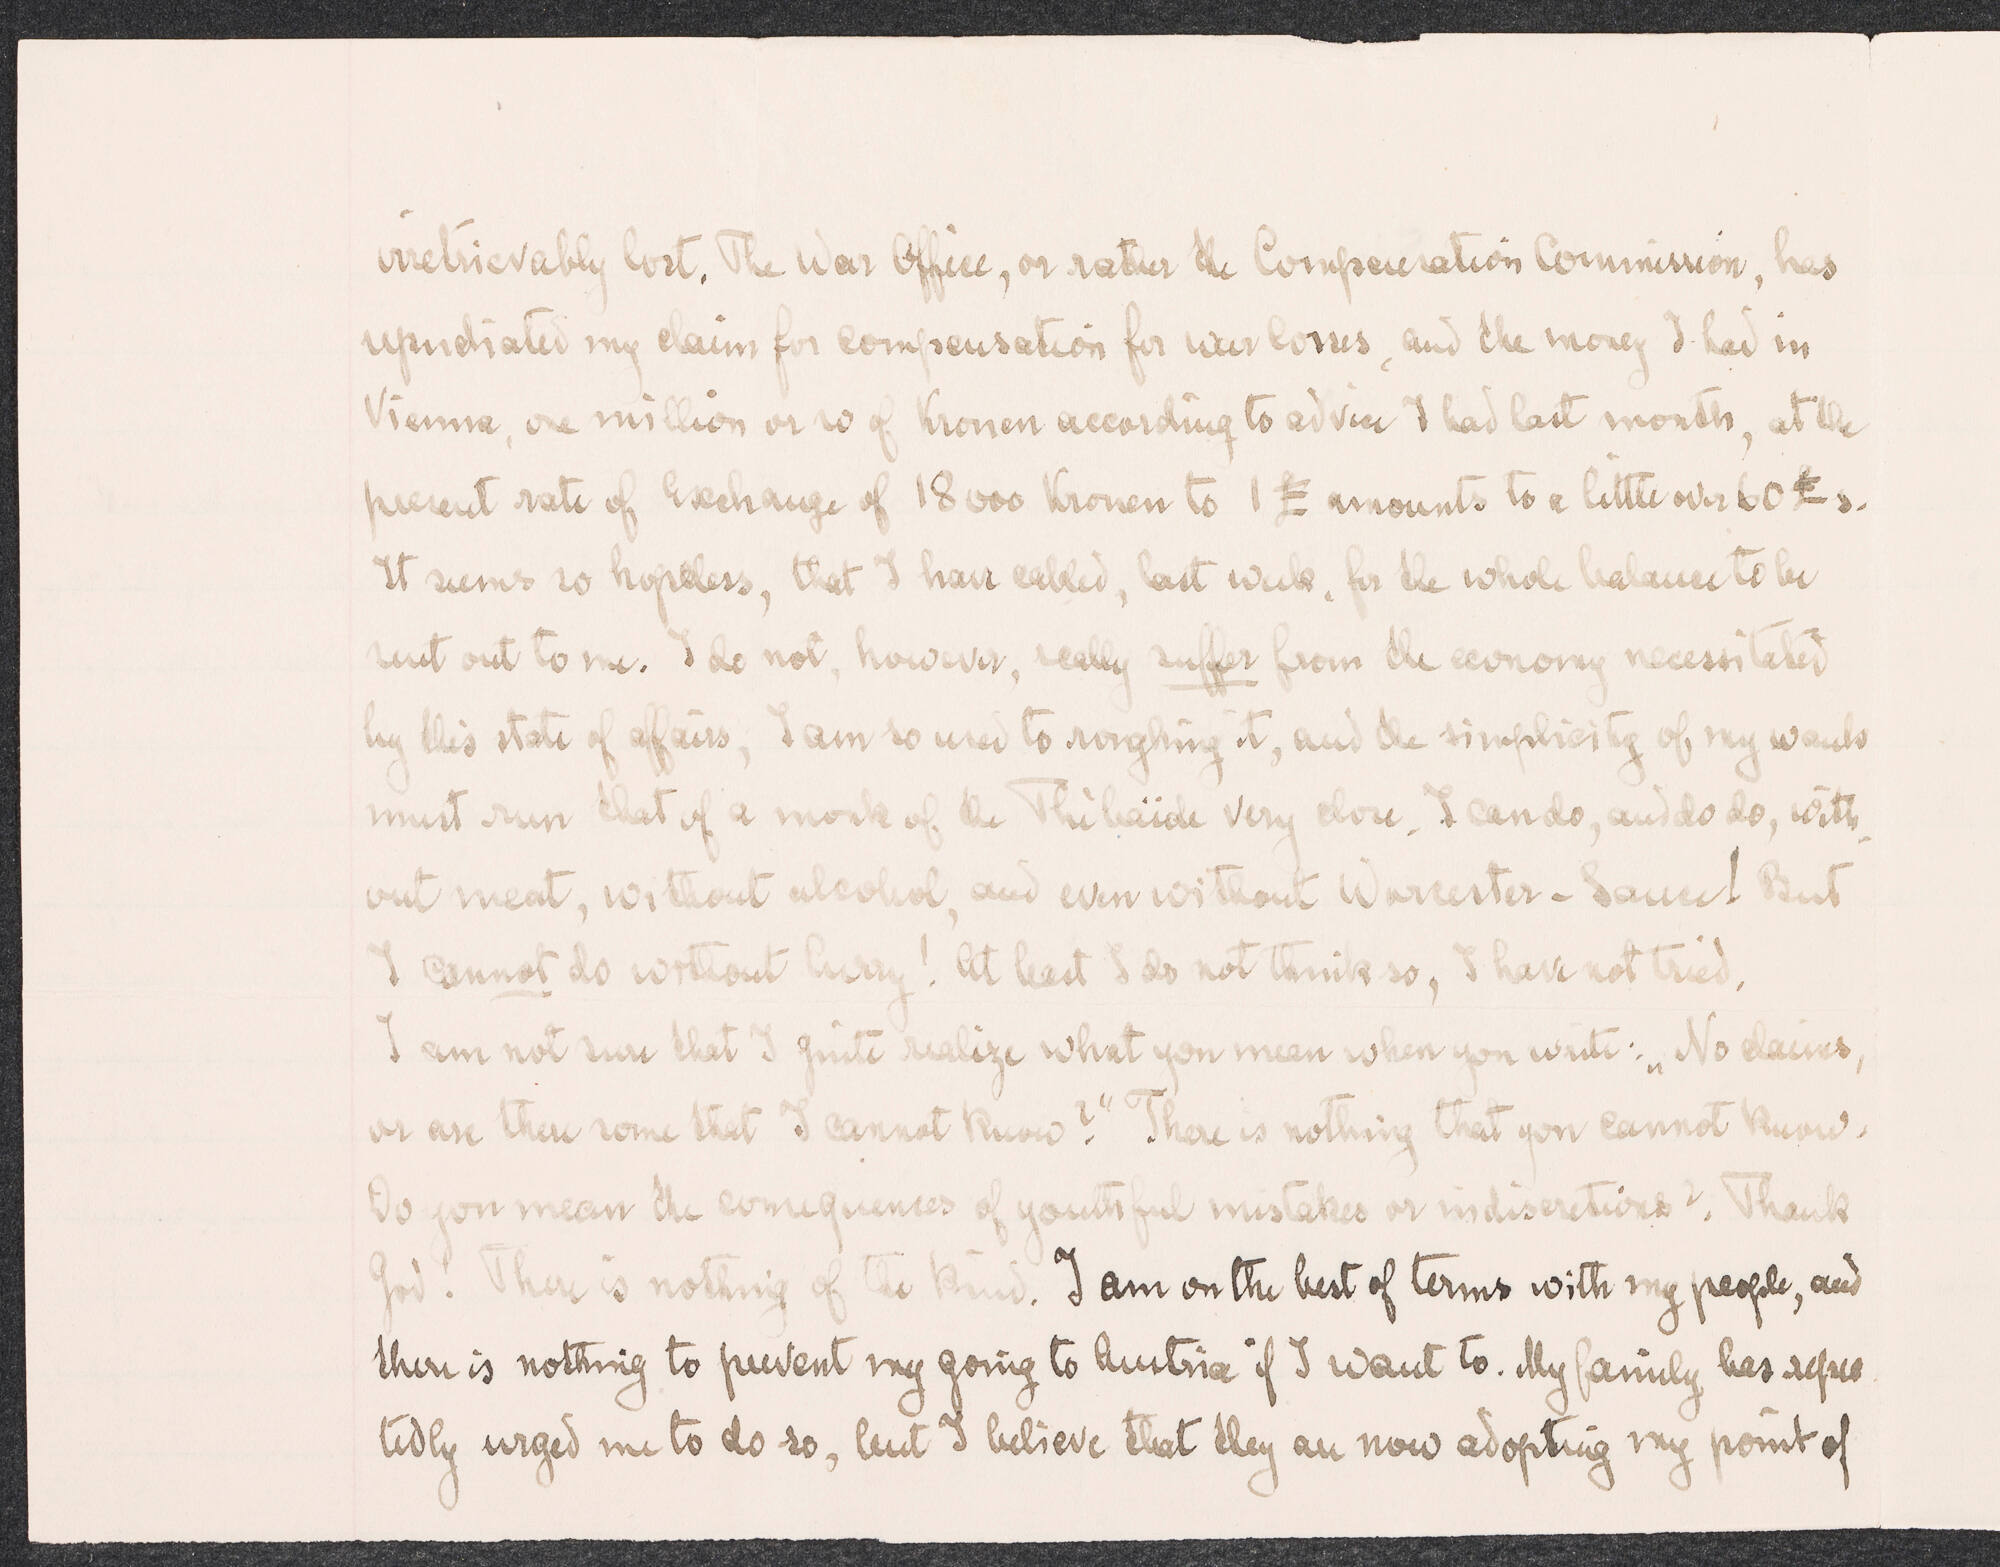 irretrievably lost. The War Office, or rather the Compensation Commission, has
repudiated my claim for compensation for war losses, and the money I had in
Vienna, one million or so of Kronen according to advice I had last month, at the
present rate of exchange of 18000 Kronen to 1 £ amounts to a little over 60 £ s.
It seems so hopeless, that I have cabled, last week, for the whole balance to be
sent out to me. I do not, however, really suffer from the economy necessitated
by this state of affairs, I am so used to roughing it, and the simplicity of my wants
must run that of a monk of the Thebaïde very close. I can do, and do do, with-
out meat, without alcohol, and even without Worcester-Sauce! But
I cannot do without curry! At least I do not think so, I have not tried.
I am not sure that I quite realize what you mean when you write: „No claims,
or are there some that I cannot know?“ There is nothing that you cannot know.
Do you mean the consequences of youthful mistakes or indiscretions? Thank
God! There is nothing of the kind. I am on the best of terms with my people, and
there is nothing to prevent my going to Austria if I want to. My family has repea
tedly urged me to do so, but I believe that they are now adopting my point of